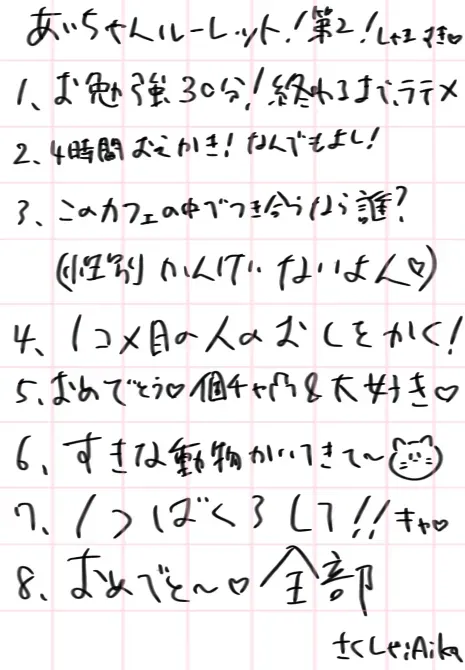 あいちゃんルーレット！第2！しゃまずき♡
1、お勉強30分！終わるまで、ラテメ
2、4時間おえかき！なんでもよし！
3、このカフェの中でつき合うなら誰？
（性別かんけいないよん♡）
4、1コメ目の人のおしをかく！
5、おめでとう♡個チャ凸&大好き♡
6、すきな動物かいてきて〜
7、1つばくろして!!キャ♡
8、おめでと〜♡全部
さくしゃ:Aika